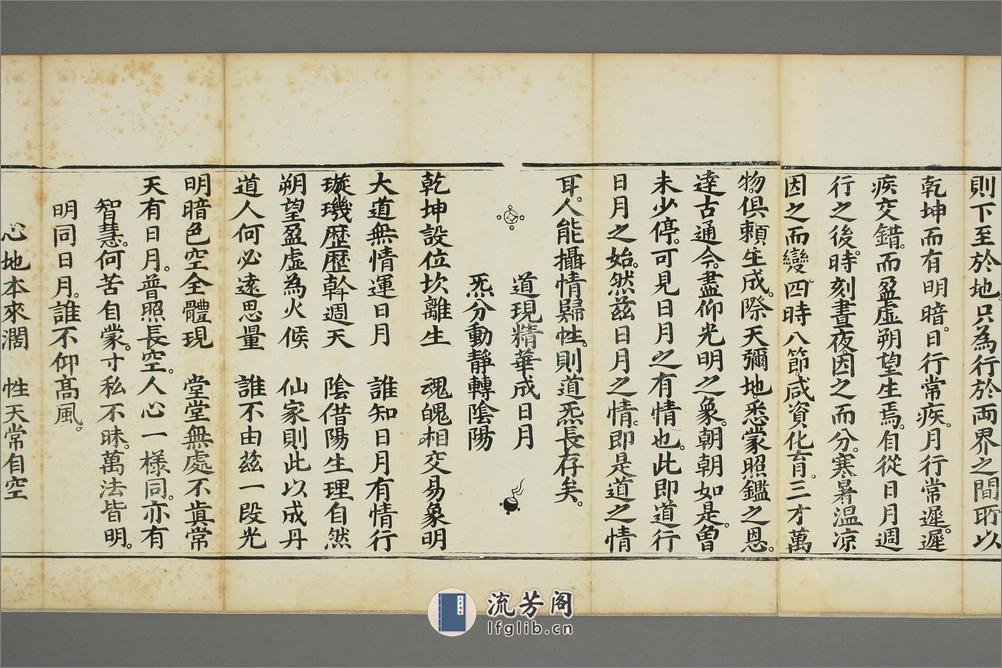 則下至於地只為行於兩界之間所以
乾坤而有明暗。日行常疾。月行常遲。遲
疾交錯。而盈虛朔望生焉。自從日月週
行之後。時刻晝夜因之而分。寒暑溫凉
因之而變。四時八節咸資化育。三才萬
物俱頼生成。際天彌地。悉蒙照鑑之恩。
達古通今。盡仰光明之象。朝朝如是。曾
未少停。可見日月之有情也。此即道行
日月之始。然茲日月之情。即是道之情
耳。人能攝情歸性。則道炁長存矣。
道現精華成日月
炁分動靜轉陰陽
乾坤設位坎離生 魂魄相交易象明
大道無情運日月 誰知日月有情行
璇璣歷歷斡週天 陰借陽生理自然
朔望盈虛為火候 仙家則此以成丹
道人何必遠思量 誰不由茲一段光
明暗色空全體現 堂堂無處不眞常
天有日月。普照長空。人心一樣同。亦有
智慧。何苦自蒙。寸私不昧。萬法皆明。
明同日月。誰不仰髙風。
心地本來濶 性天常自空
流芳阁
lfglib.cn